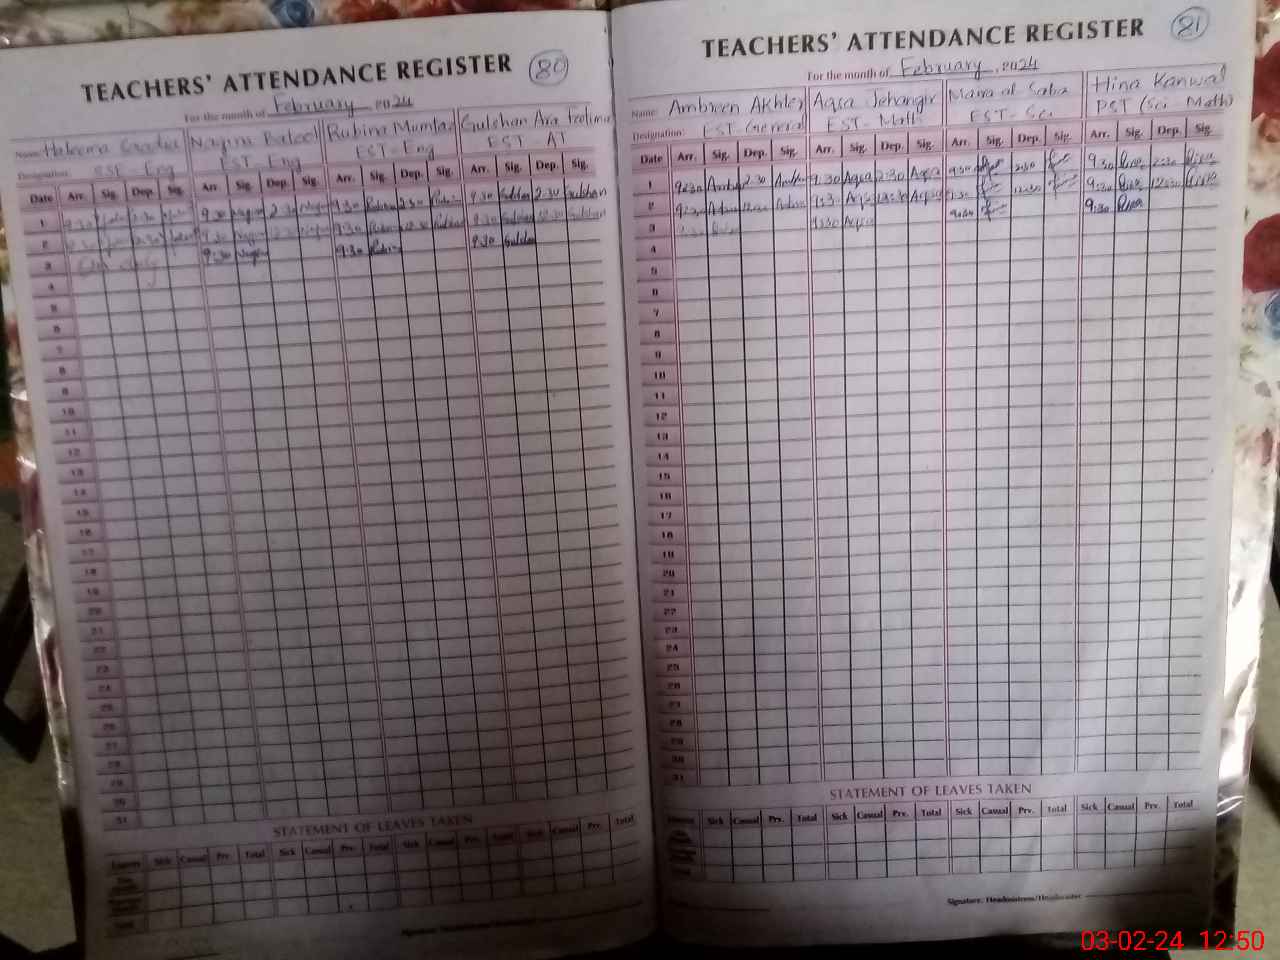 TEACHERS' ATTENDANCE REGISTER 80
For the month of February, 2024
Name: Haleema Sadia Najma Batool Rubina Mumtaz Gulshan Ara Fatima
Designation: SST-Eng EST-Eng EST-Eng EST AT
Date Arr. Sig. Dep. Sig. Arr. Sig. Dep. Sig. Arr. Sig. Dep. Sig. Arr. Sig. Dep. Sig.
1 9:30 2:30 9:30 2:30 9:30 Rubina 2:30 Rubina 9:30 Gulshan 2:30 Gulshan
2 9:30 12:30 9:30 12:30 9:30 Rubina 12:30 Rubina 9:30 Gulshan 12:30 Gulshan
3 9:30 9:30 Rubina 9:30 Gulshan
4
5
6
7
8
9
10
11
12
13
14
15
16
17
18
19
20
21
22
23
24
25
26
27
28
29
30
31
STATEMENT OF LEAVES TAKEN
Leaves Sick Casual Prv. Total Sick Casual Prv. Total Sick Casual Prv. Total Sick Casual Prv. Total
Signature, Headmistress/Headmaster
TEACHERS' ATTENDANCE REGISTER 81
For the month of February, 2024
Name: Ambreen Akhter Aqsa Jehangir Maira al Saba Hina Kanwal
Designation: EST General EST-Math EST-Sci PST (Sci-Math)
Date Arr. Sig. Dep. Sig. Arr. Sig. Dep. Sig. Arr. Sig. Dep. Sig. Arr. Sig. Dep. Sig.
1 9:30 2:30 9:30 Aqsa 2:30 Aqsa 9:30 2:30 9:30 2:30
2 9:30 9:30 Aqsa 12:30 Aqsa 9:30 12:30 9:30 12:30
3 9:30 9:30 Aqsa 9:30 9:30
4
5
6
7
8
9
10
11
12
13
14
15
16
17
18
19
20
21
22
23
24
25
26
27
28
29
30
31
STATEMENT OF LEAVES TAKEN
Leaves Sick Casual Prv. Total Sick Casual Prv. Total Sick Casual Prv. Total Sick Casual Prv. Total
Signature, Headmistress/Headmaster
03-02-24 12:50